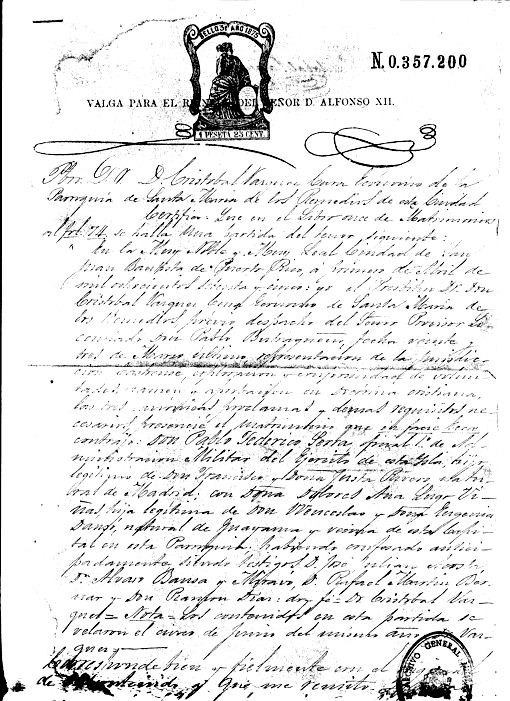 SELLO 3º AÑO 1875
N.0.357.200
VALGA PARA EL REINADO DEL SEÑOR D. ALFONSO XII.
1 PESETA 25 CENT
Pbro. D. Cristobal Vazquez Cura Ecónomo de la
Parroquia de Santa Maria de los Remedios de esta Ciudad
Certifico: Que en el Libro once de Matrimonios
al fol. 74 se halla una partida del tenor siguiente:
En la Muy Noble y Muy Leal Ciudad de San
Juan Bautista de Puerto Rico, a primero de Abril de
mil ochocientos setenta y cinco: yo el Presbitero D. Don
Cristobal Vazquez Cura Ecónomo de Santa Maria de
los Remedios previo despacho del Señor Provisor
por Pablo fecha veinte
tres de Marzo ultimo, representacion de la
castrense, y conformidad de
en doctrina cristiana,
las tres proclamas y demas requisitos ne
cesarios, presencié el matrimonio que in facie
contrajo: Don Pablo Federico oficial 1º de Ad
ministracion Militar del Ejercito de esta Isla, hijo
legitimo de Don Francisco y Doña Justa Rivero,
ral de Madrid; con Doña Dolores Ana Lugo Vi
ñas hija legitima de Don Wenceslao y Doña Eugenia
natural de Guayama y vecina de esta Capi
tal en esta Parroquia, habiendo confesado antici
padamente, siendo testigos D. José Julian Acosta,
D. Alvaro y D. Rafael Martin
y Don Ramon Diaz: doy fé= Dr Cristobal Vaz
quez= Nota= Los contenidos en esta partida se
velaron el cinco de Junio del mismo año= Vaz
quez=
Corresponde bien y fielmente con el
de y que me remito
ARCHIVO GENERAL